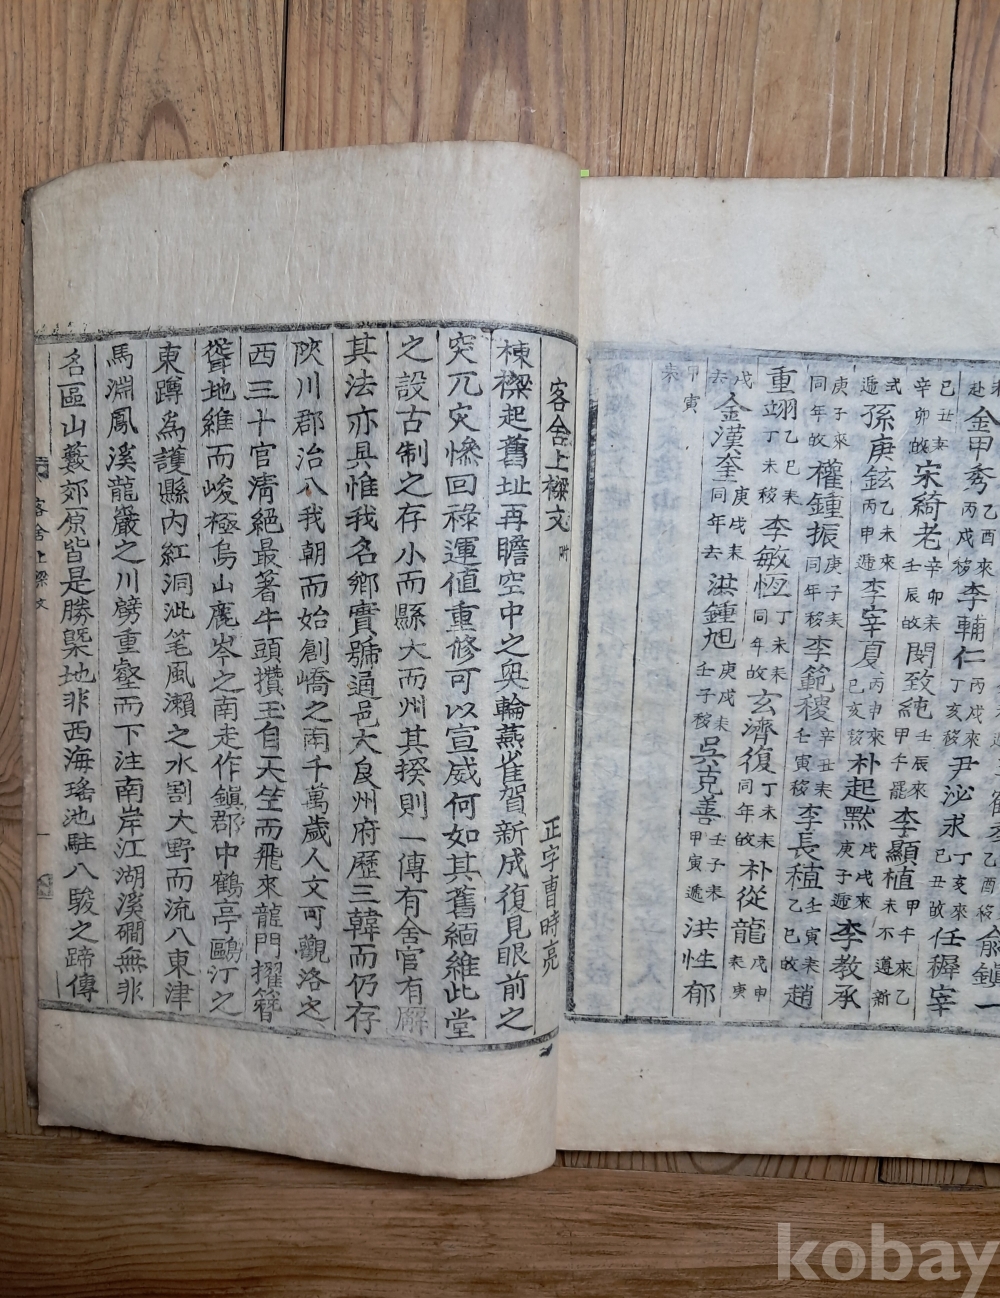 赴 金甲秀 乙酉來 丙戌移 李輔仁 丙戌來 丁亥移 尹泌求 丁亥來 己丑故 任穉宰
己丑來 辛卯故 宋綺老 辛卯來 壬辰故 閔致純 壬辰來 甲午罷 李顯植 甲午來 乙未不遵新
式遞 孫庚鉉 乙未來 丙申遞 李宰夏 丙申來 己亥移 朴起默 戊戌來 庚子遞 李教承
庚子來 同年故 權鍾振 庚子來 同年移 李範稷 辛丑來 壬寅移 李長稙 壬寅來 乙巳故 趙
重翊 乙巳來 丁未移 李敏恆 丁未來 同年故 玄濟復 丁未來 同年故 朴從龍 戊申來 庚
戌去 金漢奎 庚戌來 同年去 洪鍾旭 庚戌來 壬子移 吳克善 壬子來 甲寅遞 洪性郁
甲寅來
客舍上樑文 附 正字曺時亮
棟樑起舊址再瞻空中之奐輪燕雀賀新成復見眼前之
突兀灾慘回祿運値重修可以宣威何如其舊緬維此堂
之設古制之存小而縣大而州其揆則一傳有舍官有廨
其法亦具惟我名鄉實號通邑大良州府歷三韓而仍存
陜川郡治入我朝而始創嶠之南千萬歲人文可觀洛之
西三十官淸絕最著牛頭攢玉自天竺而飛來龍門擢簪
聳地維而峻極烏山鹿岑之南走作鎭郡中鶴亭鷗汀之
東蹲爲護縣內紅洞泚笔風瀨之水割大野而流入東津
馬淵鳳溪龍巖之川劈重壑而下注南岸江湖溪磵無非
名區山藪郊原皆是勝槩地非西海瑤池駐八駿之蹄傳
客舍上樑文
一
kobay